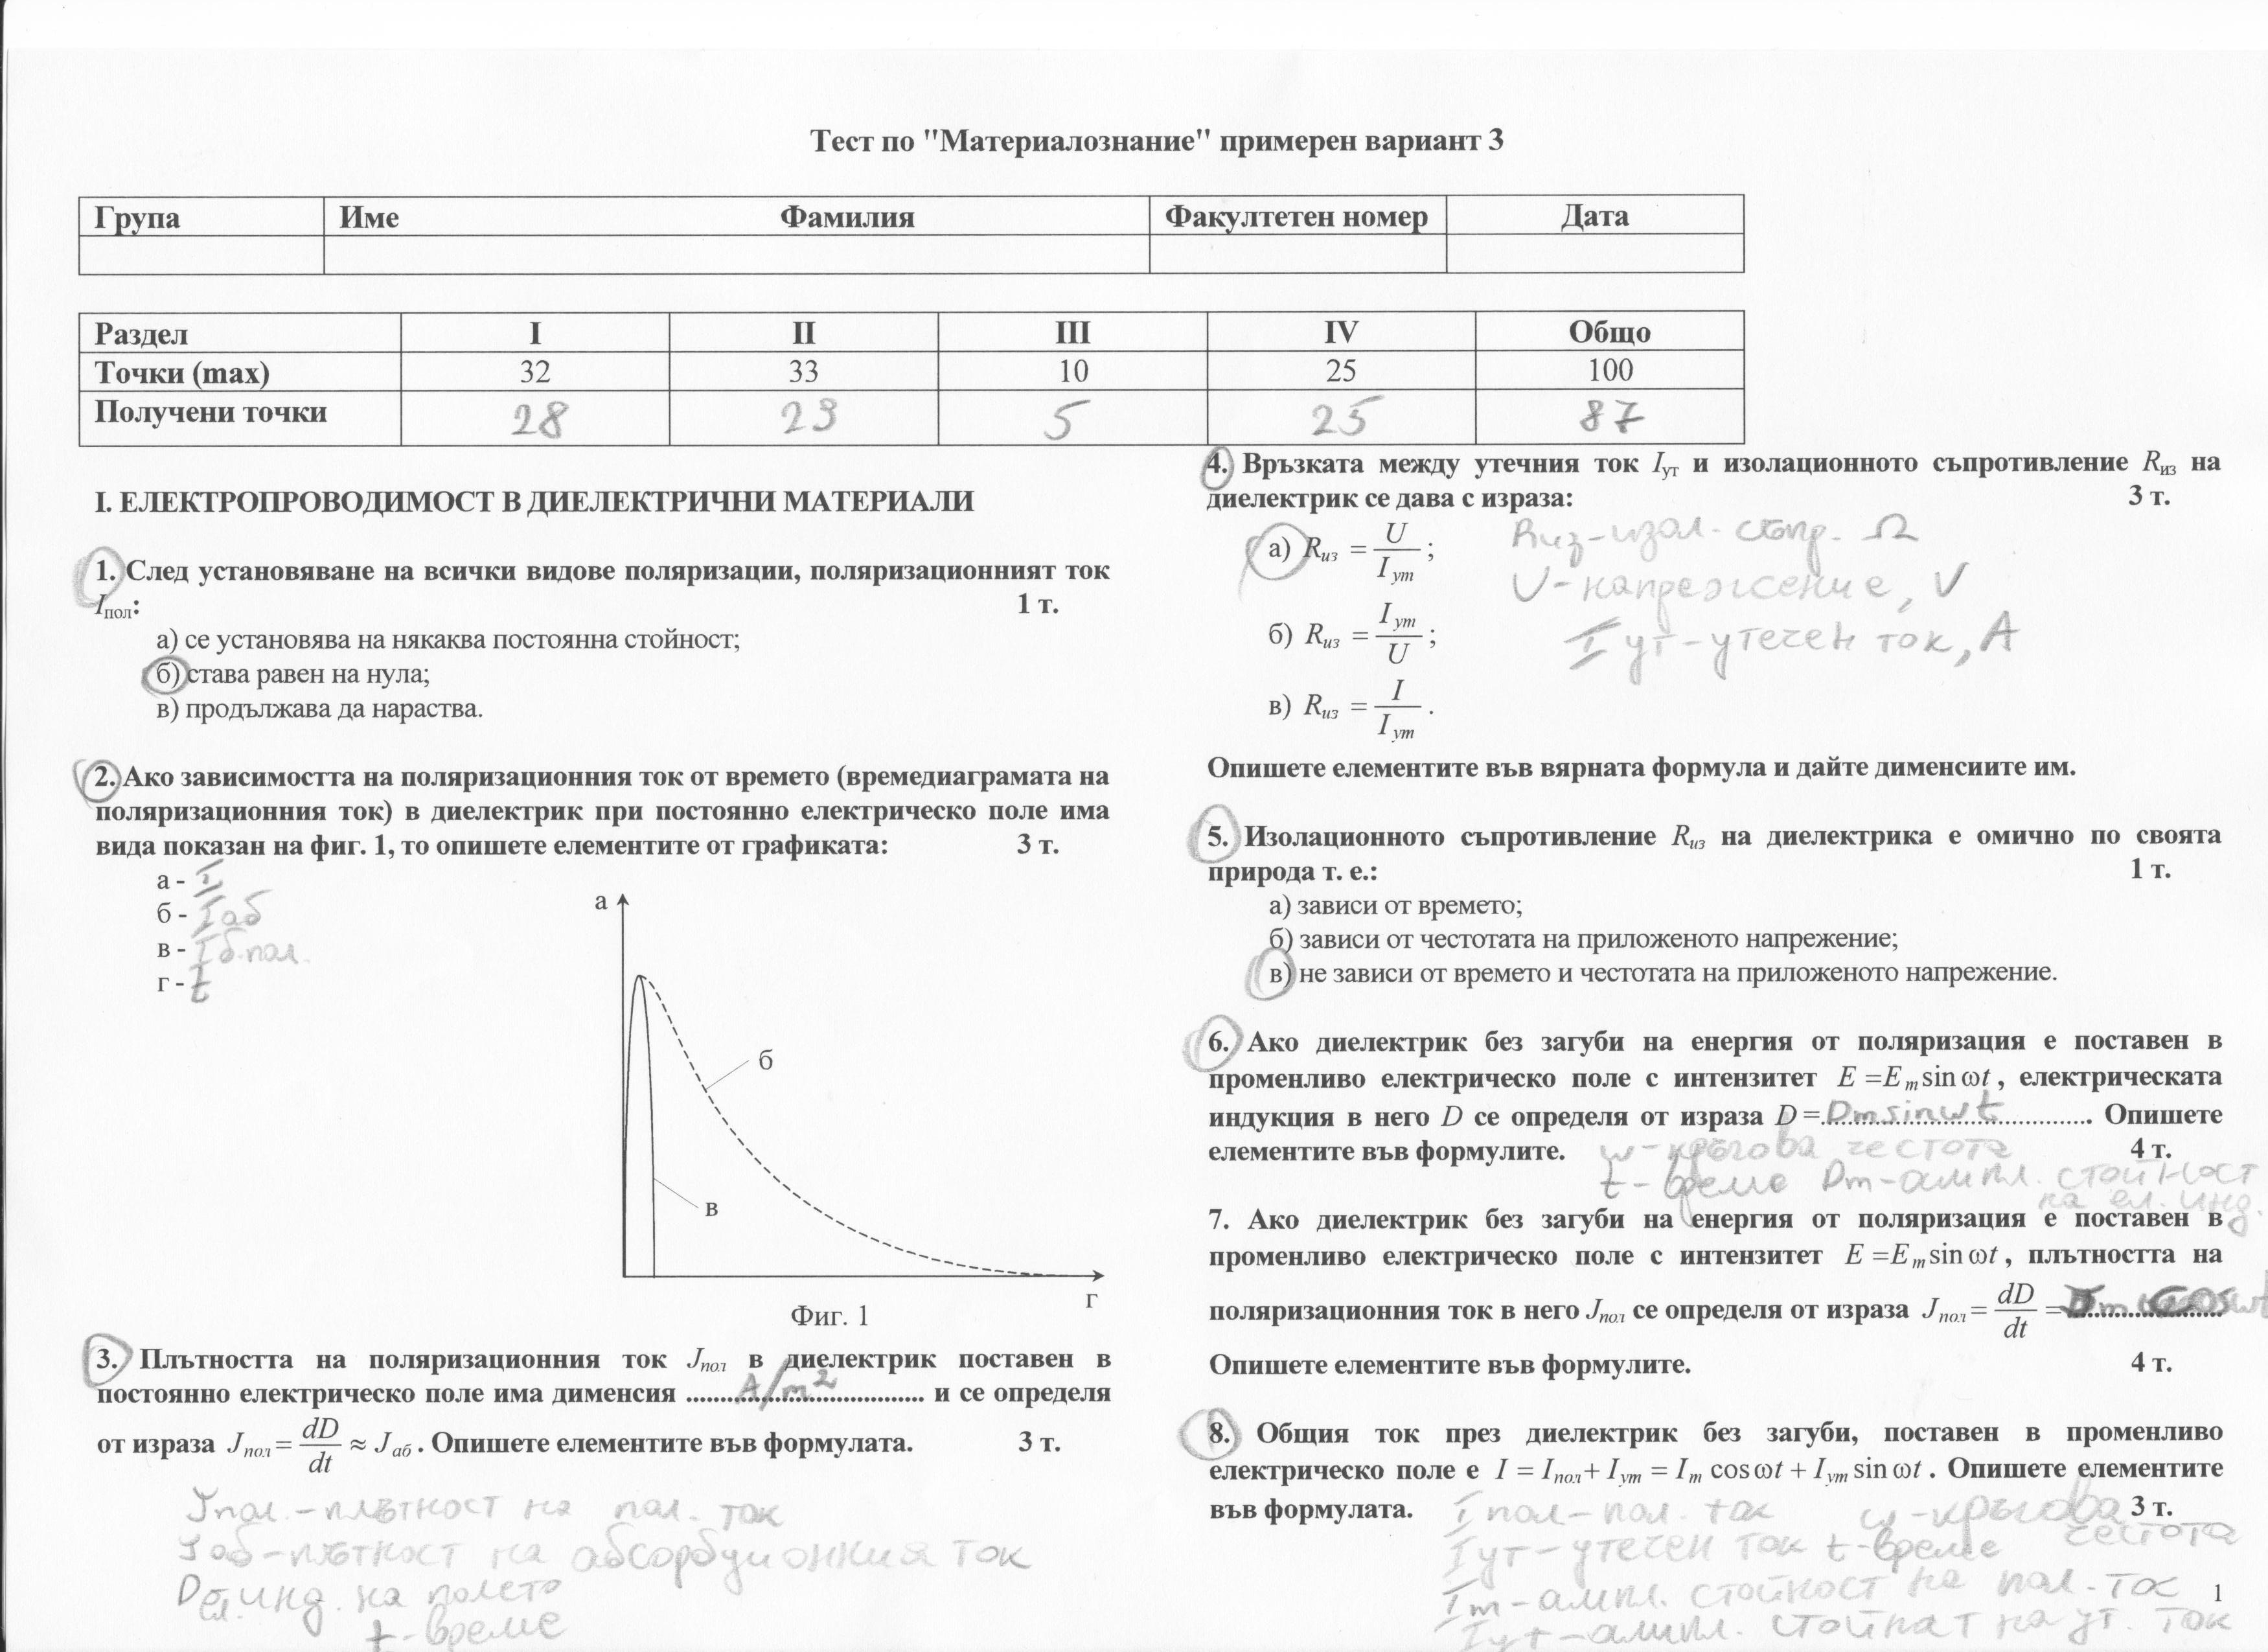 Тест по "Материалознание" примерен вариант 3
Група Име Фамилия Факултетен номер Дата
Раздел I II III IV Общо
Точки (max) 32 33 10 25 100
Получени точки 28 23 5 25 87
I. ЕЛЕКТРОПРОВОДИМОСТ В ДИЕЛЕКТРИЧНИ МАТЕРИАЛИ
1. След установяване на всички видове поляризации, поляризационният ток
Iпол: 1 т.
а) се установява на някаква постоянна стойност;
б) става равен на нула;
в) продължава да нараства.
2. Ако зависимостта на поляризационния ток от времето (времедиаграмата на
поляризационния ток) в диелектрик при постоянно електрическо поле има
вида показан на фиг. 1, то опишете елементите от графиката: 3 т.
а - I
б - Iаб
в - Iб.пол.
г - t
а
б
в
г
Фиг. 1
3. Плътността на поляризационния ток Jпол в диелектрик поставен в
постоянно електрическо поле има дименсия ....... A/m² ....... и се определя
от израза Jпол = dD/dt ≈ Jаб. Опишете елементите във формулата. 3 т.
Jпол.-плътност на пол. ток
Jаб-плътност на абсорбционния ток
D ел. инд. на полето
t-време
4. Връзката между утечния ток Iут и изолационното съпротивление Rиз на
диелектрик се дава с израза: 3 т.
а) Rиз = U/Iут;
б) Rиз = Iут/U;
в) Rиз = I/Iут.
Rиз-изол. съпр. Ω
U-напрежение, V
Iут-утечен ток, A
Опишете елементите във вярната формула и дайте дименсиите им.
5. Изолационното съпротивление Rиз на диелектрика е омично по своята
природа т. е.: 1 т.
а) зависи от времето;
б) зависи от честотата на приложеното напрежение;
в) не зависи от времето и честотата на приложеното напрежение.
6. Ако диелектрик без загуби на енергия от поляризация е поставен в
променливо електрическо поле с интензитет E = Em sin ωt, електрическата
индукция в него D се определя от израза D = Dm sin ωt ........ Опишете
елементите във формулите. 4 т.
ω-кръгова честота
t-време Dm-ампл. стойност
на ел. инд.
7. Ако диелектрик без загуби на енергия от поляризация е поставен в
променливо електрическо поле с интензитет E = Em sin ωt, плътността на
поляризационния ток в него Jпол се определя от израза Jпол = dD/dt = m cos ωt
Опишете елементите във формулите. 4 т.
8. Общия ток през диелектрик без загуби, поставен в променливо
електрическо поле е I = Iпол + Iут = Im cos ωt + Iут sin ωt. Опишете елементите
във формулата. 3 т.
Iпол-пол. ток ω-кръгова честота
Iут-утечен ток t-време
Im-ампл. стойност на пол. ток
Iут-ампл. стойнат на ут. ток
1